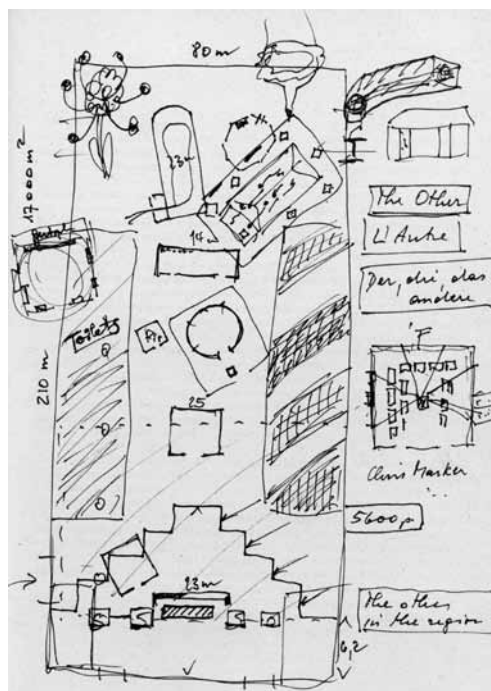 80 m
17000 m²
23 m
The Other
L'Autre
Der, die, das
andere
14
Toilets
Pip
210 m
25
Chris Marker
5600 p
23 m
The other
in the region
6,2